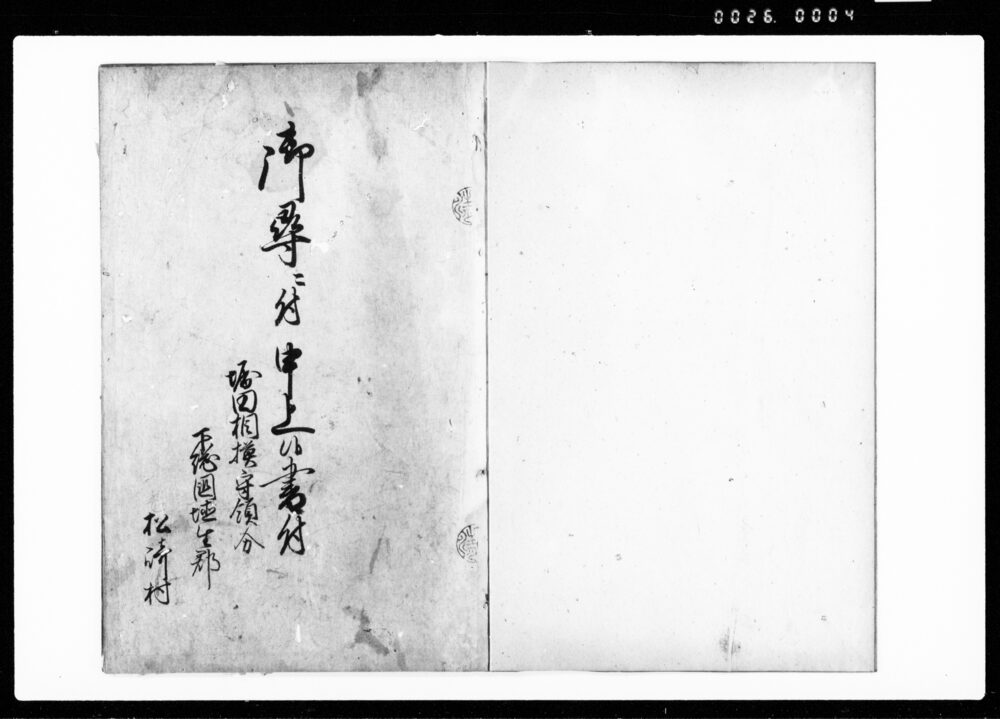 0026. 0004
御尋ニ付申上候書付
堀田相模守領分
下総国埴生郡
松崎村